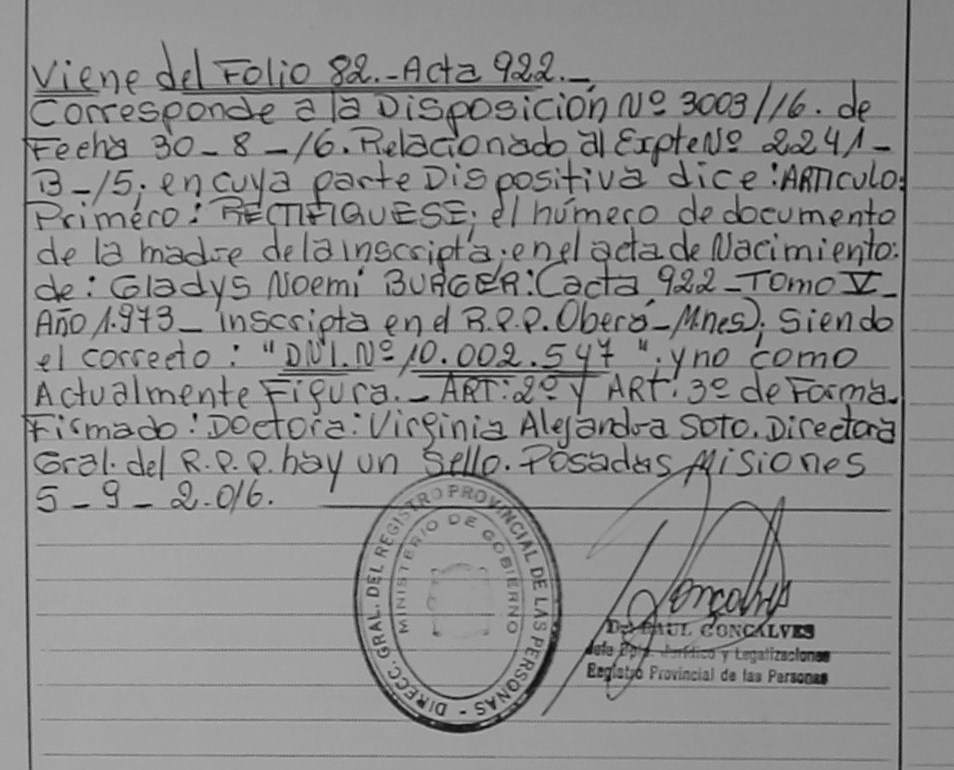 Viene del Folio 82.-Acta 922.-
Corresponde a la Disposición Nº 3003/16. de
Fecha 30-8-16. Relacionado al Expte Nº 2241-
B-15; en cuya parte Dispositiva dice: ARTICULO:
Primero: RECTIFIQUESE; el número de documento
de la madre de la inscripta; en el acta de Nacimiento:
de: Gladys Noemí BURGER: (acta 922-Tomo V-
Año 1.973- inscripta en el R.P.P. Oberá-Mnes). Siendo
el correcto: "DNI. Nº 10.002.547". y no como
Actualmente Figura.- ART: 2º y ART: 3º de Forma.
Firmado: Doctora: Virginia Alejandra Soto. Directora
Gral. del R.P.P. hay un Sello. Posadas Misiones
5-9-2.016.
DIRECC. GRAL. DEL REGISTRO PROVINCIAL DE LAS PERSONAS - MISIONES -
MINISTERIO DE GOBIERNO
Gonçalves
Dr. RAUL GONCALVES
Jefe Dpto. Jurídico y Legalizaciones
Registro Provincial de las Personas